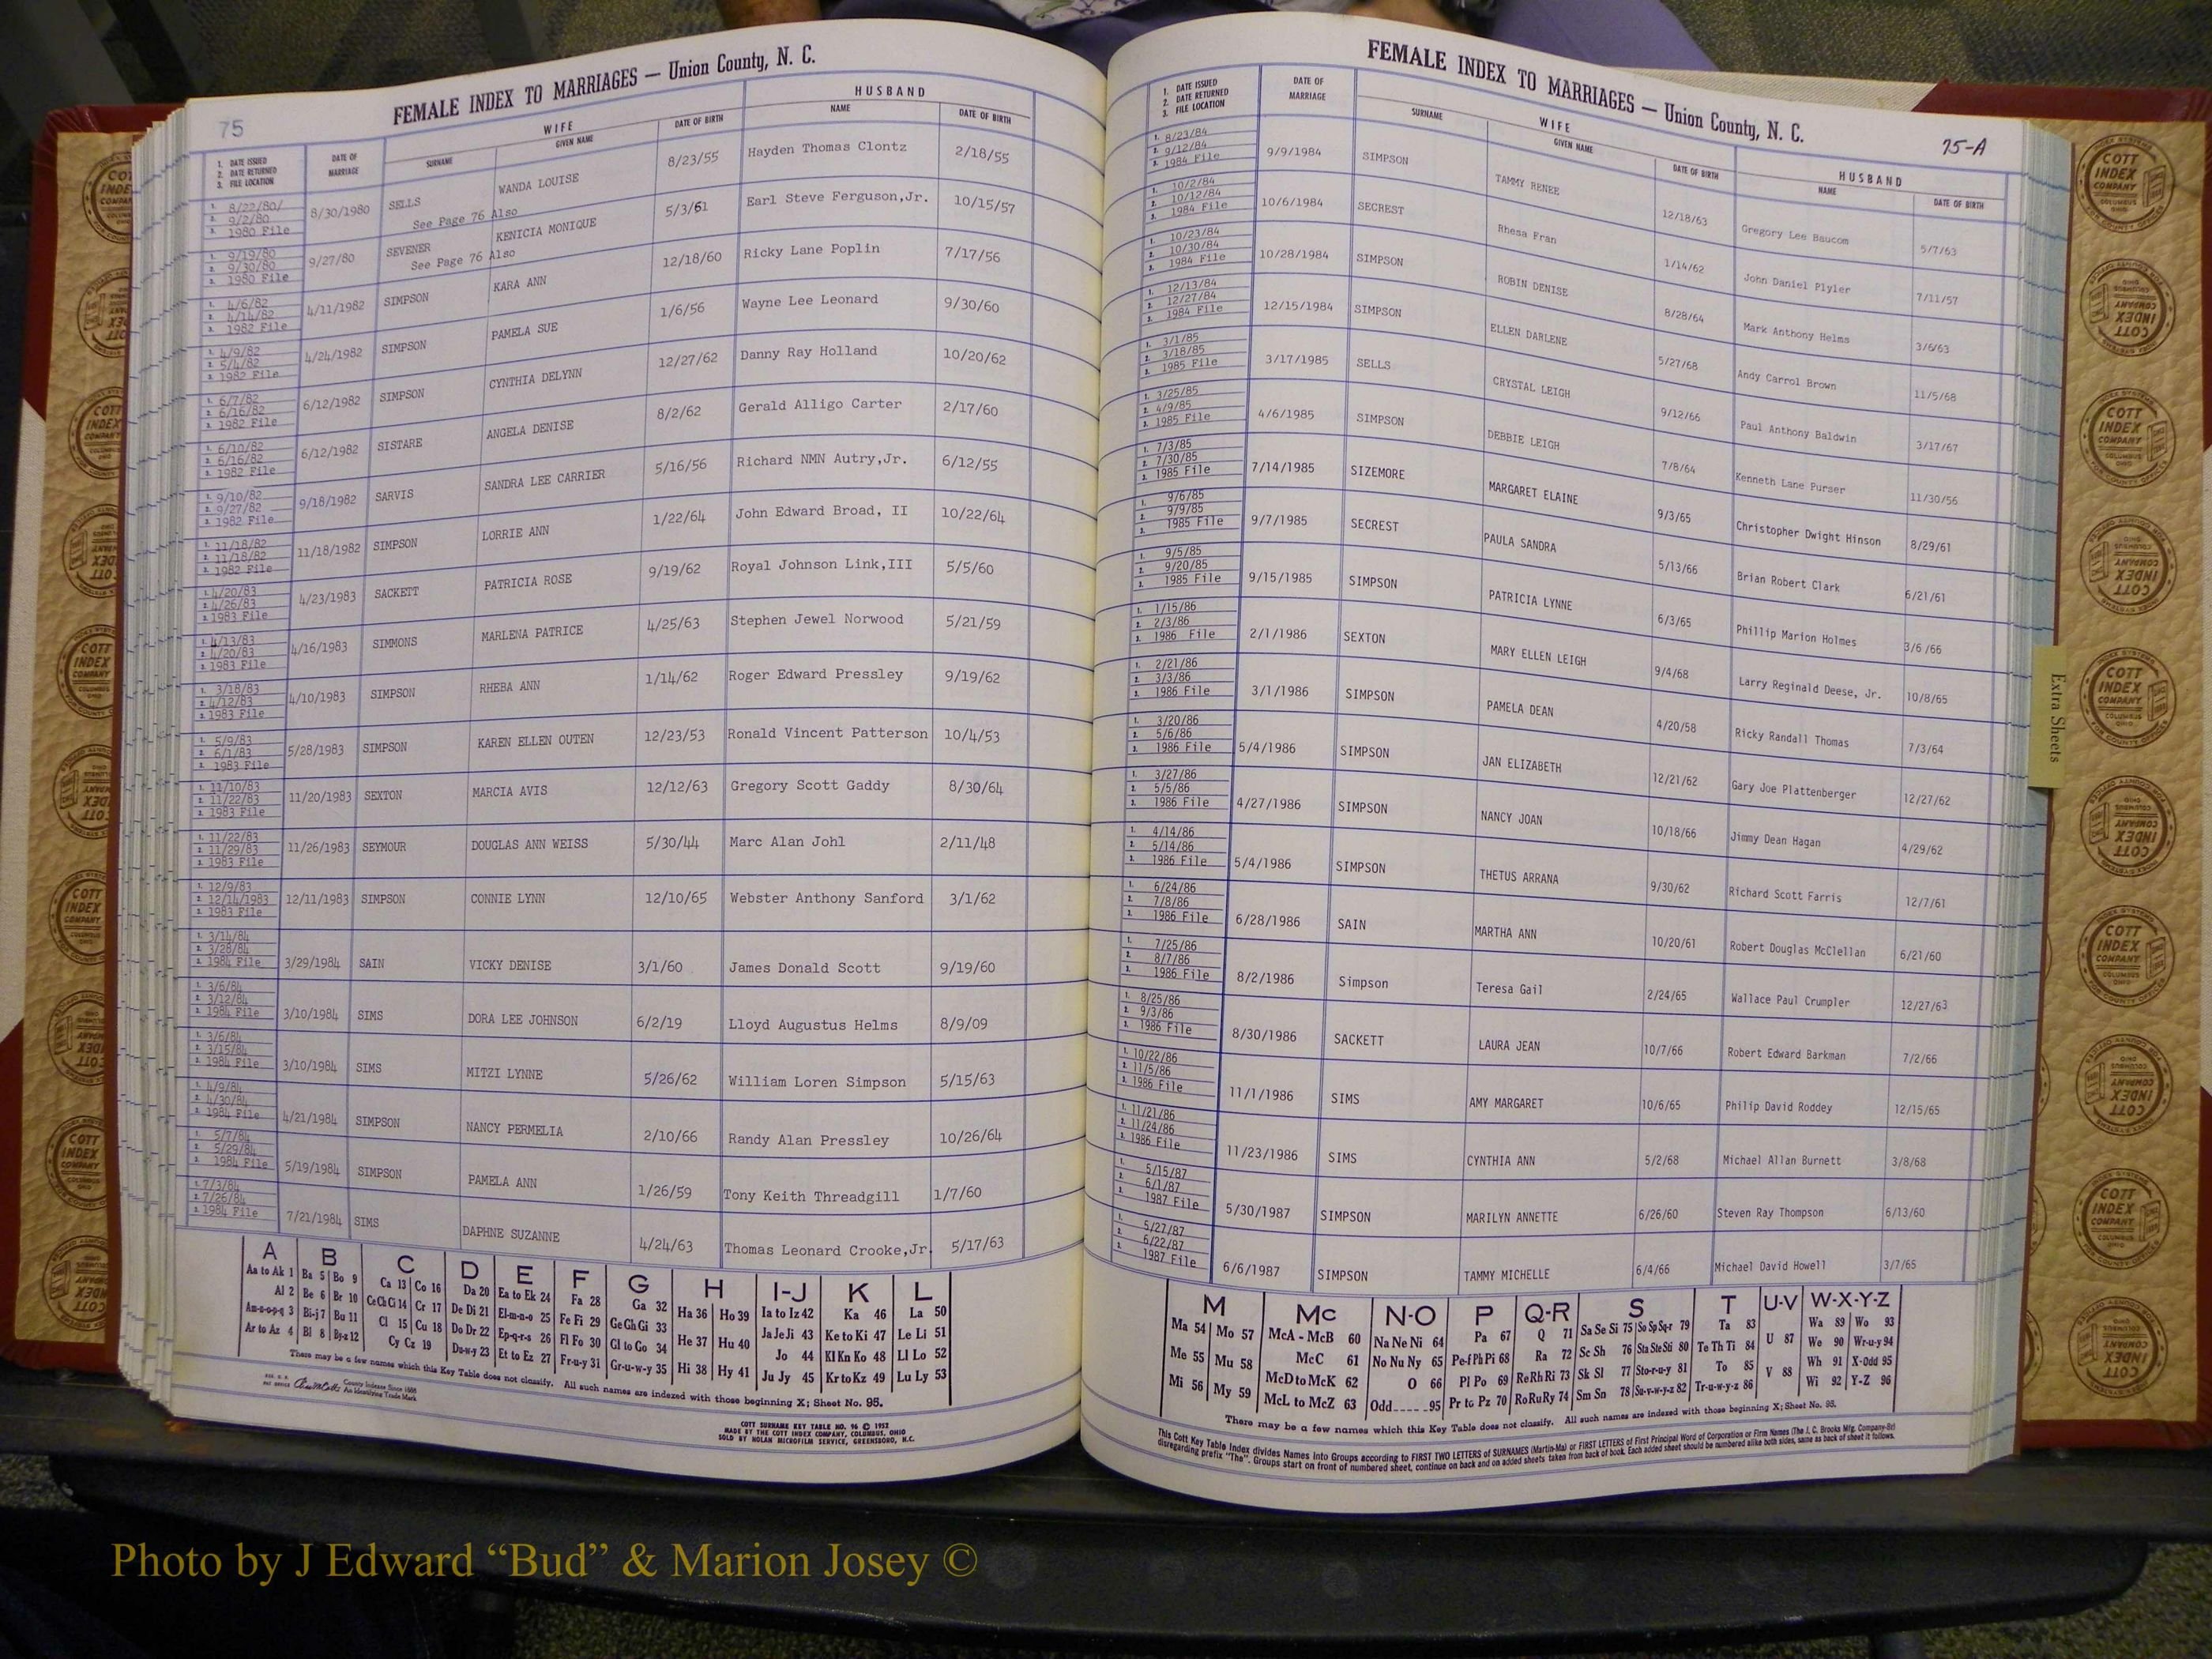 FEMALE INDEX TO MARRIAGES — Union County, N. C.
75
1. DATE ISSUED
2. DATE RETURNED
3. FILE LOCATION
DATE OF MARRIAGE
WIFE
SURNAME
GIVEN NAME
DATE OF BIRTH
HUSBAND
NAME
DATE OF BIRTH
1. 8/22/80/
2. 9/2/80
3. 1980 File
8/30/1980 SELLS WANDA LOUISE 8/23/55 Hayden Thomas Clontz 2/18/55
See Page 76 Also
1. 9/19/80
2. 9/30/80
3. 1980 File
9/27/80 SEVENER KENICIA MONIQUE 5/3/61 Earl Steve Ferguson,Jr. 10/15/57
See Page 76 Also
1. 4/6/82
2. 4/14/82
3. 1982 File
4/11/1982 SIMPSON KARA ANN 12/18/60 Ricky Lane Poplin 7/17/56
1. 4/9/82
2. 5/4/82
3. 1982 File
4/24/1982 SIMPSON PAMELA SUE 1/6/56 Wayne Lee Leonard 9/30/60
1. 6/7/82
2. 6/16/82
3. 1982 File
6/12/1982 SIMPSON CYNTHIA DELYNN 12/27/62 Danny Ray Holland 10/20/62
1. 6/10/82
2. 6/16/82
3. 1982 File
6/12/1982 SISTARE ANGELA DENISE 8/2/62 Gerald Alligo Carter 2/17/60
1. 9/10/82
2. 9/27/82
3. 1982 File
9/18/1982 SARVIS SANDRA LEE CARRIER 5/16/56 Richard NMN Autry,Jr. 6/12/55
1. 11/18/82
2. 11/18/82
3. 1982 File
11/18/1982 SIMPSON LORRIE ANN 1/22/64 John Edward Broad, II 10/22/64
1. 4/20/83
2. 4/26/83
3. 1983 File
4/23/1983 SACKETT PATRICIA ROSE 9/19/62 Royal Johnson Link,III 5/5/60
1. 4/13/83
2. 4/20/83
3. 1983 File
4/16/1983 SIMMONS MARLENA PATRICE 4/25/63 Stephen Jewel Norwood 5/21/59
1. 3/18/83
2. 4/12/83
3. 1983 File
4/10/1983 SIMPSON RHEBA ANN 1/14/62 Roger Edward Pressley 9/19/62
1. 5/9/83
2. 6/1/83
3. 1983 File
5/28/1983 SIMPSON KAREN ELLEN OUTEN 12/23/53 Ronald Vincent Patterson 10/4/53
1. 11/10/83
2. 11/22/83
3. 1983 File
11/20/1983 SEXTON MARCIA AVIS 12/12/63 Gregory Scott Gaddy 8/30/64
1. 11/22/83
2. 11/29/83
3. 1983 File
11/26/1983 SEYMOUR DOUGLAS ANN WEISS 5/30/44 Marc Alan Johl 2/11/48
1. 12/9/83
2. 12/14/1983
3. 1983 File
12/11/1983 SIMPSON CONNIE LYNN 12/10/65 Webster Anthony Sanford 3/1/62
1. 3/14/84
2. 3/28/84
3. 1984 File
3/29/1984 SAIN VICKY DENISE 3/1/60 James Donald Scott 9/19/60
1. 3/6/84
2. 3/12/84
3. 1984 File
3/10/1984 SIMS DORA LEE JOHNSON 6/2/19 Lloyd Augustus Helms 8/9/09
1. 3/6/84
2. 3/15/84
3. 1984 File
3/10/1984 SIMS MITZI LYNNE 5/26/62 William Loren Simpson 5/15/63
1. 4/9/84
2. 4/30/84
3. 1984 File
4/21/1984 SIMPSON NANCY PERMELIA 2/10/66 Randy Alan Pressley 10/26/64
1. 5/7/84
2. 5/29/84
3. 1984 File
5/19/1984 SIMPSON PAMELA ANN 1/26/59 Tony Keith Threadgill 1/7/60
1. 7/3/84
2. 7/26/84
3. 1984 File
7/21/1984 SIMS DAPHNE SUZANNE 4/24/63 Thomas Leonard Crooke,Jr. 5/17/63
A B C D E F G H I-J K L
Aa to Ak 1 Ba 5 Bo 9 Ca 13 Co 16 Da 20 Ea to Ek 24 Fa 28 Ga 32 Ha 36 Ho 39 Ia to Iz 42 Ka 46 La 50
Al 2 Be 6 Br 10 Ce Ch Ci 14 Cr 17 De Di 21 El-m-n-o 25 Fe Fi 29 Ge Gh Gi 33 He 37 Hu 40 Ja Je Ji 43 Ke to Ki 47 Le Li 51
Am-n-o-p-q 3 Bi-j 7 Bu 11 Cl 15 Cu 18 Do Dr 22 Ep-q-r-s 26 Fl Fo 30 Gl to Go 34 Hi 38 Hy 41 Jo 44 Kl Kn Ko 48 Ll Lo 52
Ar to Az 4 Bl 8 By-z 12 Cy Cz 19 Du-w-y 23 Et to Ez 27 Fr-u-y 31 Gr-u-w-y 35 Ju Jy 45 Kr to Kz 49 Lu Ly 53
There may be a few names which this Key Table does not classify. All such names are indexed with those beginning X; Sheet No. 95.
County Indexes Since 1888
An Identifying Trade Mark
COTT SURNAME KEY TABLE NO. 96 © 1952
MADE BY THE COTT INDEX COMPANY, COLUMBUS, OHIO
SOLD BY NOLAN MICROFILM SERVICE, GREENSBORO, N.C.
FEMALE INDEX TO MARRIAGES — Union County, N. C.
75-A
1. DATE ISSUED
2. DATE RETURNED
3. FILE LOCATION
DATE OF MARRIAGE
WIFE
SURNAME
GIVEN NAME
DATE OF BIRTH
HUSBAND
NAME
DATE OF BIRTH
1. 8/23/84
2. 9/12/84
3. 1984 File
9/9/1984 SIMPSON TAMMY RENEE 12/18/63 Gregory Lee Baucom 5/7/63
1. 10/2/84
2. 10/12/84
3. 1984 File
10/6/1984 SECREST Rhesa Fran 1/14/62 John Daniel Plyler 7/11/57
1. 10/23/84
2. 10/30/84
3. 1984 File
10/28/1984 SIMPSON ROBIN DENISE 8/28/64 Mark Anthony Helms 3/6/63
1. 12/13/84
2. 12/27/84
3. 1984 File
12/15/1984 SIMPSON ELLEN DARLENE 5/27/68 Andy Carrol Brown 11/5/68
1. 3/1/85
2. 3/18/85
3. 1985 File
3/17/1985 SELLS CRYSTAL LEIGH 9/12/66 Paul Anthony Baldwin 3/17/67
1. 3/25/85
2. 4/9/85
3. 1985 File
4/6/1985 SIMPSON DEBBIE LEIGH 7/8/64 Kenneth Lane Purser 11/30/56
1. 7/3/85
2. 7/30/85
3. 1985 File
7/14/1985 SIZEMORE MARGARET ELAINE 9/3/65 Christopher Dwight Hinson 8/29/61
1. 9/6/85
2. 9/9/85
3. 1985 File
9/7/1985 SECREST PAULA SANDRA 5/13/66 Brian Robert Clark 6/21/61
1. 9/5/85
2. 9/20/85
3. 1985 File
9/15/1985 SIMPSON PATRICIA LYNNE 6/3/65 Phillip Marion Holmes 3/6 /66
1. 1/15/86
2. 2/3/86
3. 1986 File
2/1/1986 SEXTON MARY ELLEN LEIGH 9/4/68 Larry Reginald Deese, Jr. 10/8/65
1. 2/21/86
2. 3/3/86
3. 1986 File
3/1/1986 SIMPSON PAMELA DEAN 4/20/58 Ricky Randall Thomas 7/3/64
1. 3/20/86
2. 5/6/86
3. 1986 File
5/4/1986 SIMPSON JAN ELIZABETH 12/21/62 Gary Joe Plattenberger 12/27/62
1. 3/27/86
2. 5/5/86
3. 1986 File
4/27/1986 SIMPSON NANCY JOAN 10/18/66 Jimmy Dean Hagan 4/29/62
1. 4/14/86
2. 5/14/86
3. 1986 File
5/4/1986 SIMPSON THETUS ARRANA 9/30/62 Richard Scott Farris 12/7/61
1. 6/24/86
2. 7/8/86
3. 1986 File
6/28/1986 SAIN MARTHA ANN 10/20/61 Robert Douglas McClellan 6/21/60
1. 7/25/86
2. 8/7/86
3. 1986 File
8/2/1986 Simpson Teresa Gail 2/24/65 Wallace Paul Crumpler 12/27/63
1. 8/25/86
2. 9/3/86
3. 1986 File
8/30/1986 SACKETT LAURA JEAN 10/7/66 Robert Edward Barkman 7/2/66
1. 10/22/86
2. 11/5/86
3. 1986 File
11/1/1986 SIMS AMY MARGARET 10/6/65 Philip David Roddey 12/15/65
1. 11/21/86
2. 11/24/86
3. 1986 File
11/23/1986 SIMS CYNTHIA ANN 5/2/68 Michael Allan Burnett 3/8/68
1. 5/15/87
2. 6/1/87
3. 1987 File
5/30/1987 SIMPSON MARILYN ANNETTE 6/26/60 Steven Ray Thompson 6/13/60
1. 5/27/87
2. 6/22/87
3. 1987 File
6/6/1987 SIMPSON TAMMY MICHELLE 6/4/66 Michael David Howell 3/7/65
M Mc N-O P Q-R S T U-V W-X-Y-Z
Ma 54 Mo 57 McA - McB 60 Na Ne Ni 64 Pa 67 Q 71 Sa Se Si 75 So Sp Sq-r 79 Ta 83 U 87 Wa 89 Wo 93
Me 55 Mu 58 McC 61 No Nu Ny 65 Pe-f Ph Pi 68 Ra 72 Sc Sh 76 Sta Ste Sti 80 Te Th Ti 84 V 88 We 90 Wr-u-y 94
Mi 56 My 59 McD to McK 62 O 66 Pl Po 69 Re Rh Ri 73 Sk Sl 77 Sto-r-u-y 81 To 85 Wh 91 X-Odd 95
McL to McZ 63 Odd 95 Pr to Pz 70 Ro Ru Ry 74 Sm Sn 78 Su-v-w-y-z 82 Tr-u-w-y-z 86 Wi 92 Y-Z 96
There may be a few names which this Key Table does not classify. All such names are indexed with those beginning X; Sheet No. 95.
This Cott Key Table Index divides Names into Groups according to FIRST TWO LETTERS of SURNAMES (Martin-Ma) or FIRST LETTERS of First Principal Word of Corporation or Firm Names (The J. C. Brooks Mfg. Company-Br)
disregarding prefix "The". Groups start on front of numbered sheet, continue on back and on added sheets taken from back of book. Each added sheet should be numbered alike both sides, same as back of sheet it follows.
Extra Sheets
COTT INDEX COMPANY
COLUMBUS OHIO
Photo by J Edward “Bud” & Marion Josey ©